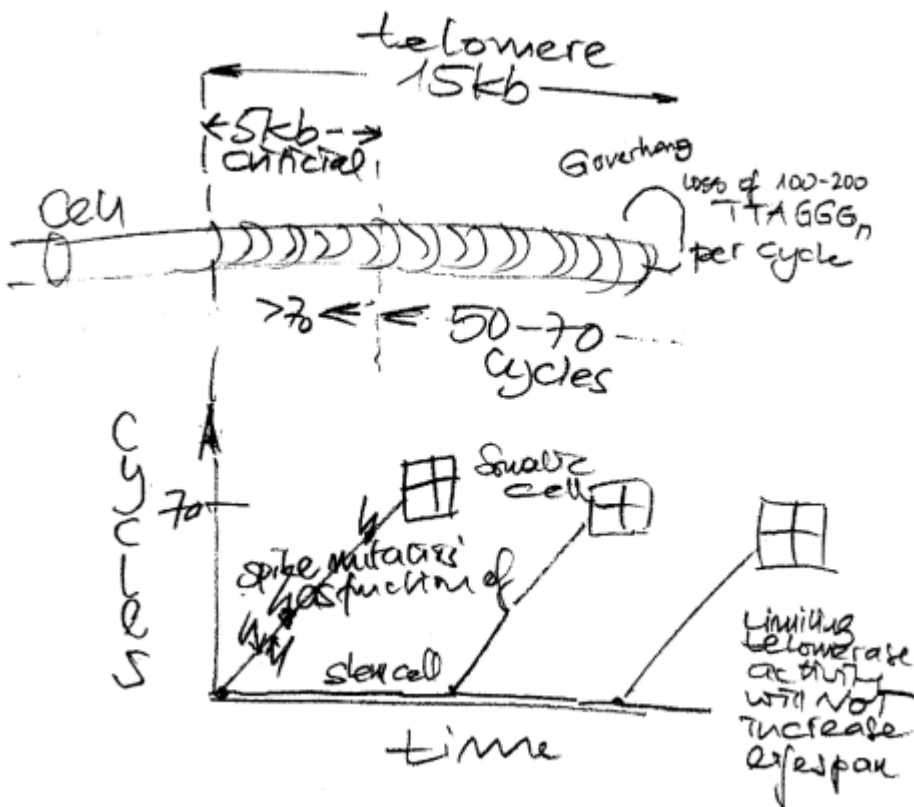 telomere
15kb
5kb
G overhang
loss of 100-200
TTAGGGn
per cycle
Cell
>70
50-70
cycles
cycles
70
Somatic
cell
spike mutations
as function of
stem cell
time
Limiting
telomerase
activity
will NOT
increase
lifespan